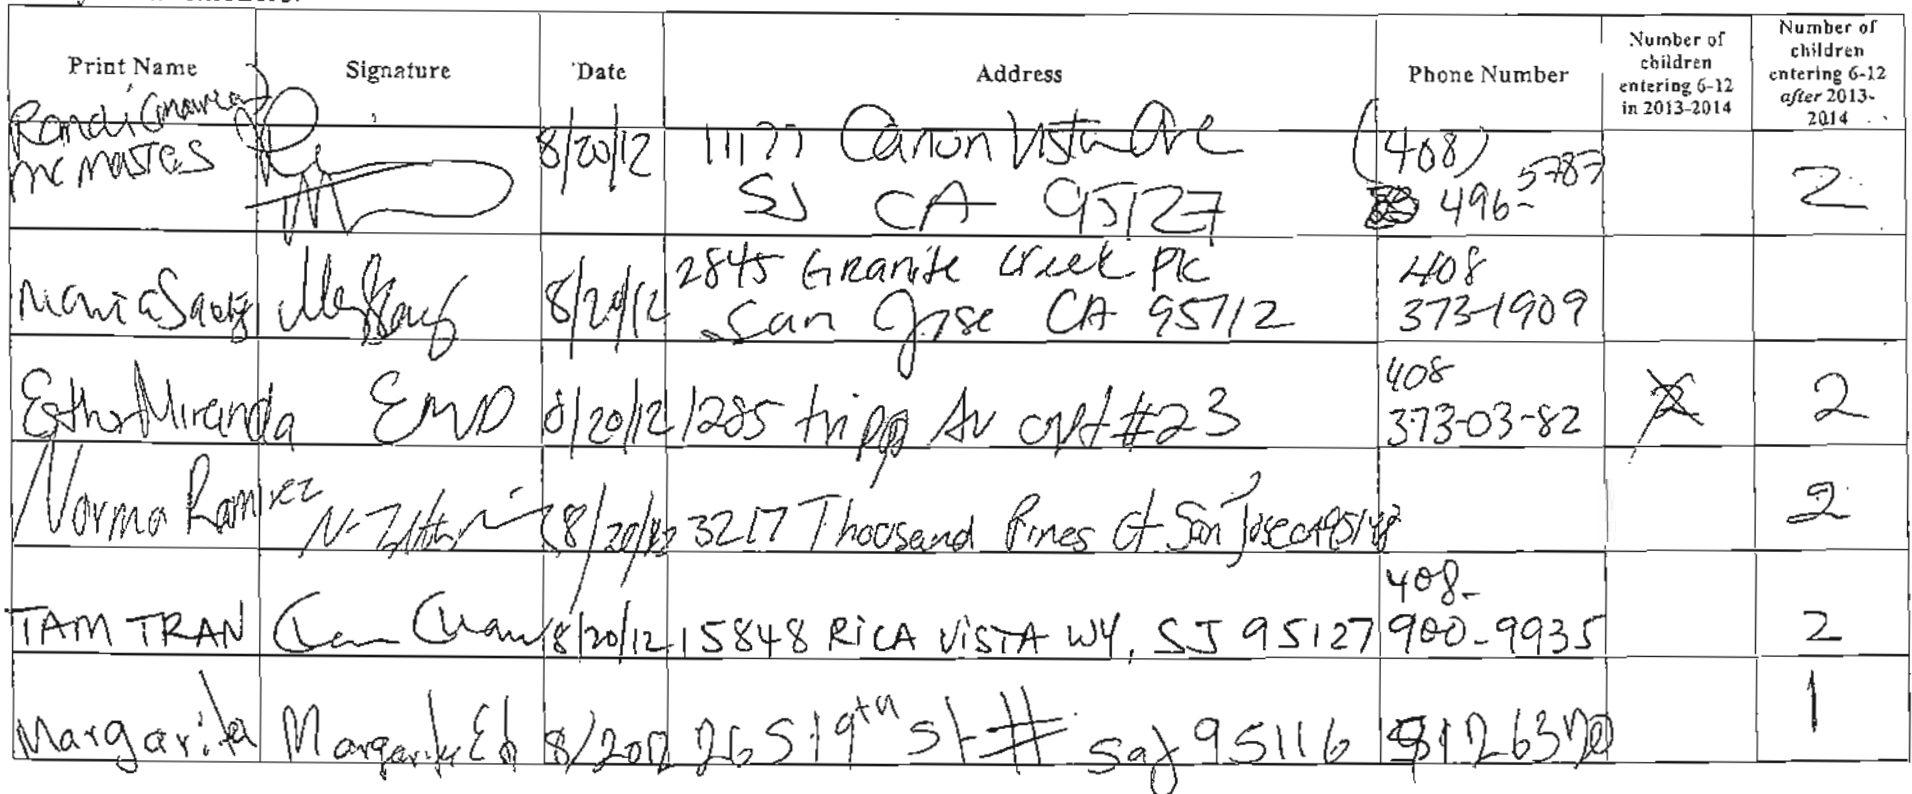 Print Name Signature Date Address Phone Number Number of children entering 6-12 in 2013-2014 Number of children entering 6-12 after 2013-2014
8/20/12 Canon Vista Ave (408)
SJ CA 95127 496-5787 2
2845 Granite Creek Plc 408
Maria 8/20/12 San Jose CA 95112 373-1909
408
Esther Miranda EMD 8/20/12 1285 tripp Av apt #23 373-03-82 2 2
Norma Ramirez 8/20/12 3217 Thoosand Pines Ct San Jose CA 2
408-
TAM TRAN 8/20/12 15848 RICA VISTA WY, SJ 95127 900-9935 2
Margarita Margarita 8/2012 265 19th St # 95116 1